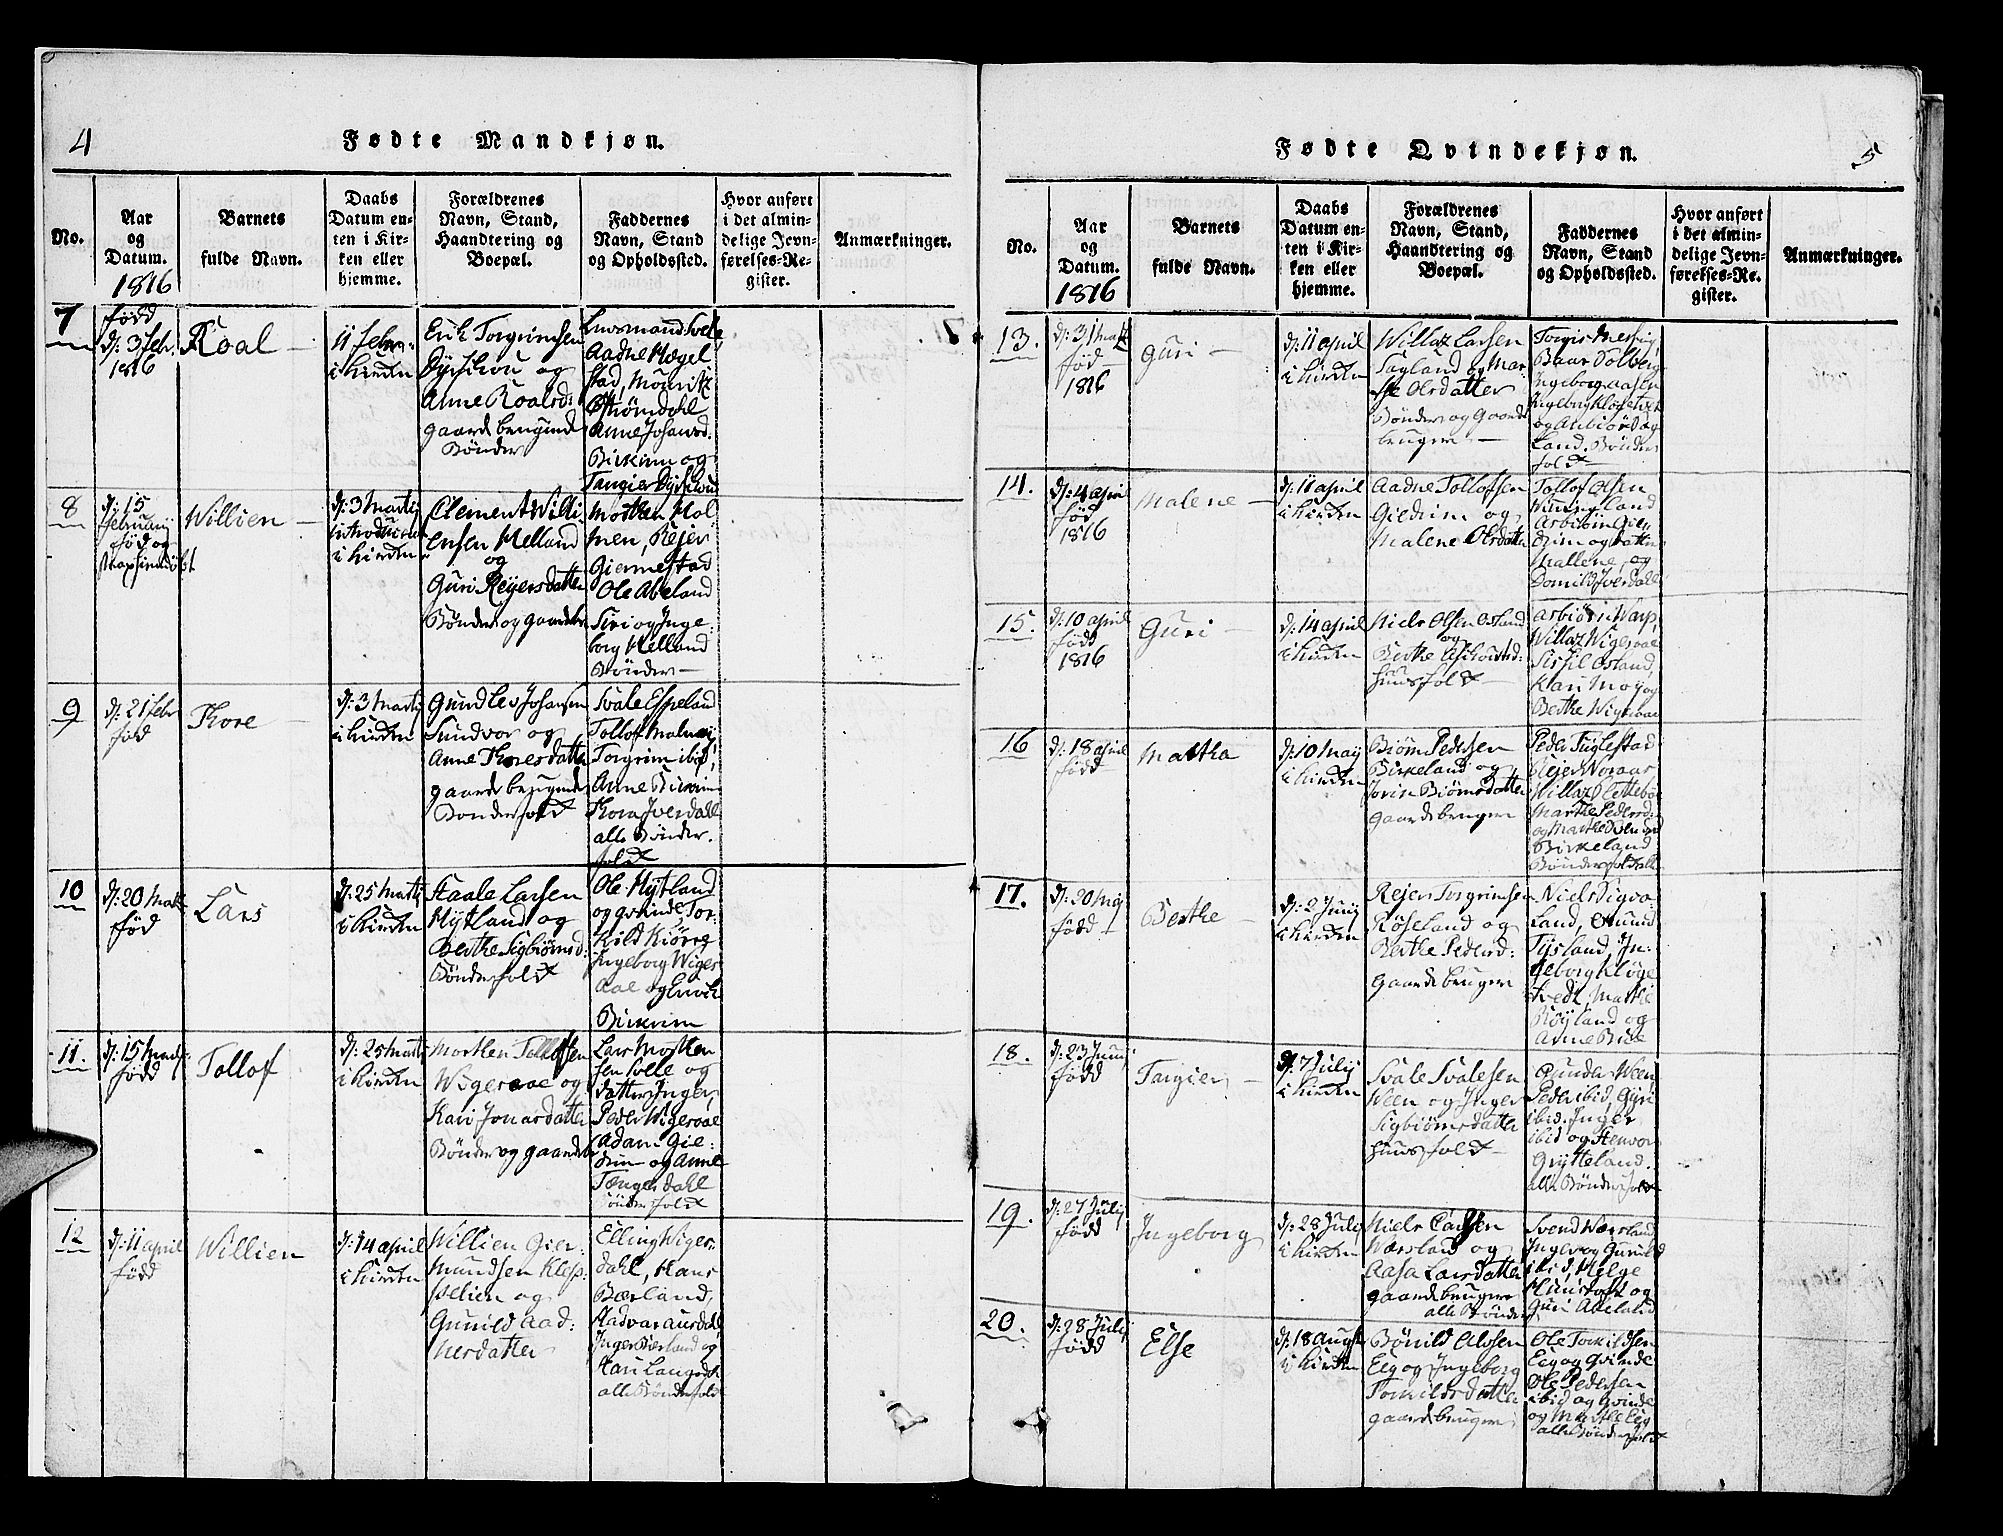 4
Fødte Mandkjøn.
No.
Aar
og
Datum.
1816
Barnets
fulde Navn.
Daabs
Datum en-
ten i Kir-
ken eller
hjemme.
Forældrenes
Navn, Stand,
Haandtering og
Boepæl.
Faddernes
Navn, Stand
og Opholdssted.
Hvor anført
i det almin-
delige Jevn-
førelses-Re-
gister.
Anmærkninger.
7
född
d: 3 febr.
1816
Roal
11 febr.
i kirken
Erik Torgrimsen
Dyrskou og
Anne Roalsd:
gaardbrugende
Bønder
Lensmand Svele
Aadne Hægel
stad, Mouritz
Strømdahl
Anne Johansd.
Birkrim og
Tangier Dyrskou
8
d: 15
februarij
fød og
Willien
d: 3 Martij
i kirken
Clement Willi
ensen Helland
og
Guri Reijersdatter
Bønder og gaardbr
Morten Hol
men, Reier
Giermestad
Ole Abeland
Siri og Inge:
borg Helland
Bønder
9
d: 21 febr
fød
Tore
d: 3 Martij
i kirken
Gundlev Johansen
Sundvor og
Anne Thoresdatter
gaardbrugende
Bonderfolck
Svale Espeland
Tollof Malmeij
Torgrim ibid,
Anne Birkrim
Thora Iverdall
alle Bønder.
folck
10
d: 20 Mart
född
Lars
d: 25 Martij
i kirken
Staale Larsen
Hytland og
Berthe Sigbiørnsd:
Bønderfolck
Ole Hytland
og qvinde Tor-
kild Kiørre
Ingeborg Wiges
aae og Enoch
Birkrim
11.
d: 15 Martj:
född
Tollof
d: 25 Martij
i kirken
Morthen Tollofsen
Wigesaae og
Kari Jonasdatter
Bønder og gaardbr
Lars Morthen
sen Svele og
datter Inger,
Peder Wigesaae
Adam Gie:
drim og Anne
Tængesdahl
Bønderfolck
12
d: 11 april
född
Willien
d: 14 april
i kirken
Willien Gier-
mundsen Klep
pelien og
Gunild Aad:
nesdatter
Elling Wiges:
dahl, Hans
Bærland,
Hadvar Aursdahl
Inger Bærland og
Kari Laugardt
alle Bønderfolck
5
Fødte Qvindekjøn.
No.
Aar
og
Datum.
1816
Barnets
fulde Navn.
Daabs
Datum en-
ten i Kir-
ken eller
hjemme.
Forældrenes
Navn, Stand,
Haandtering og
Boepæl.
Faddernes
Navn, Stand
og Opholdssted.
Hvor anført
i det almin-
delige Jevn-
førelses-Re-
gister.
Anmærkninger.
13.
d: 31 Martz
fød
1816
Guri
d: 11 april
i kirken
Willaz Larsen
Sagland og Mar
the Olsdatter
Bønder og Gaards
bruger
Torgis
Baar Solberg
Ingeborg Aasen
Ingeborg Kløgetvet
og
Land. Bønder
folck
14.
d: 4 april
fød
1816
Malene
d: 11 april
i kirken
Aadne Tollofsen
Giedrim og
Malene Olsdatter
Tollof Olsen
Asbiørn Gie
drim og datter
Mallene, og
Domild Iverdahl
15.
d: 10 april
född
1816
Guri
d: 14 april
i kirken
Niels Olsen Osland
og
Berthe
Huusfolck
Asbiørn Warp,
Willaz Wigesaae
Sirsil Osland,
Kari Moij og
Berthe Wigesaae
16
d: 18 april
född
Martha
d: 10 Maij
i kirken
Biørn Pedersen
Birkeland og
Jorin Biørnsdatter
gaardbruger
Peder Fuglestad
Reier Noraas
Willaz Slettebøe
Marthe Pedersd:
og Marthe
Birkeland
Bønderfolck alle
17.
d: 20 Maij
född
Berthe
d: 2 Junij
i kirken
Rejer Torgrimsen
Røseland og
Berthe Pedersd:
gaardbruger
Niels Sigva-
Land, Omund
Tijsland, In-
geborg Kløge
tvedt, Marthe
Røyland og
Anne Bue
18.
d: 23 Junij
född
Targier
d: 7 Julij
i kirken
Svale Svalesen
Ween og Inger
Sigbiørnsdatter
Huusfolck
Gunder Ween,
Peder ibid, Guri
ibid. Inger
ibid og Stenvor
Grytteland.
alle Bønderfolck
19.
d: 27 Julij
född
Ingeborg
d: 28 Julij
i kirken
Niels Larsen
Wærsland og
Aasa Larsdatter
gaardbruger
alle Bønder
Svend Wærsland
Inger og Gunild
ibid, Helge
Hunstoft og
Guri Abeland
20.
d: 28 Julij
född
Else
d: 18 August
i kirken
Bønild Olsen
Eeg og Ingeborg
Torkildsdatter
gaardbruger
Ole Torkildsen
Eeg og qvinde
Ole Pedersen
ibid og qvinde
og Marthe Eeg
alle Bønderfolck